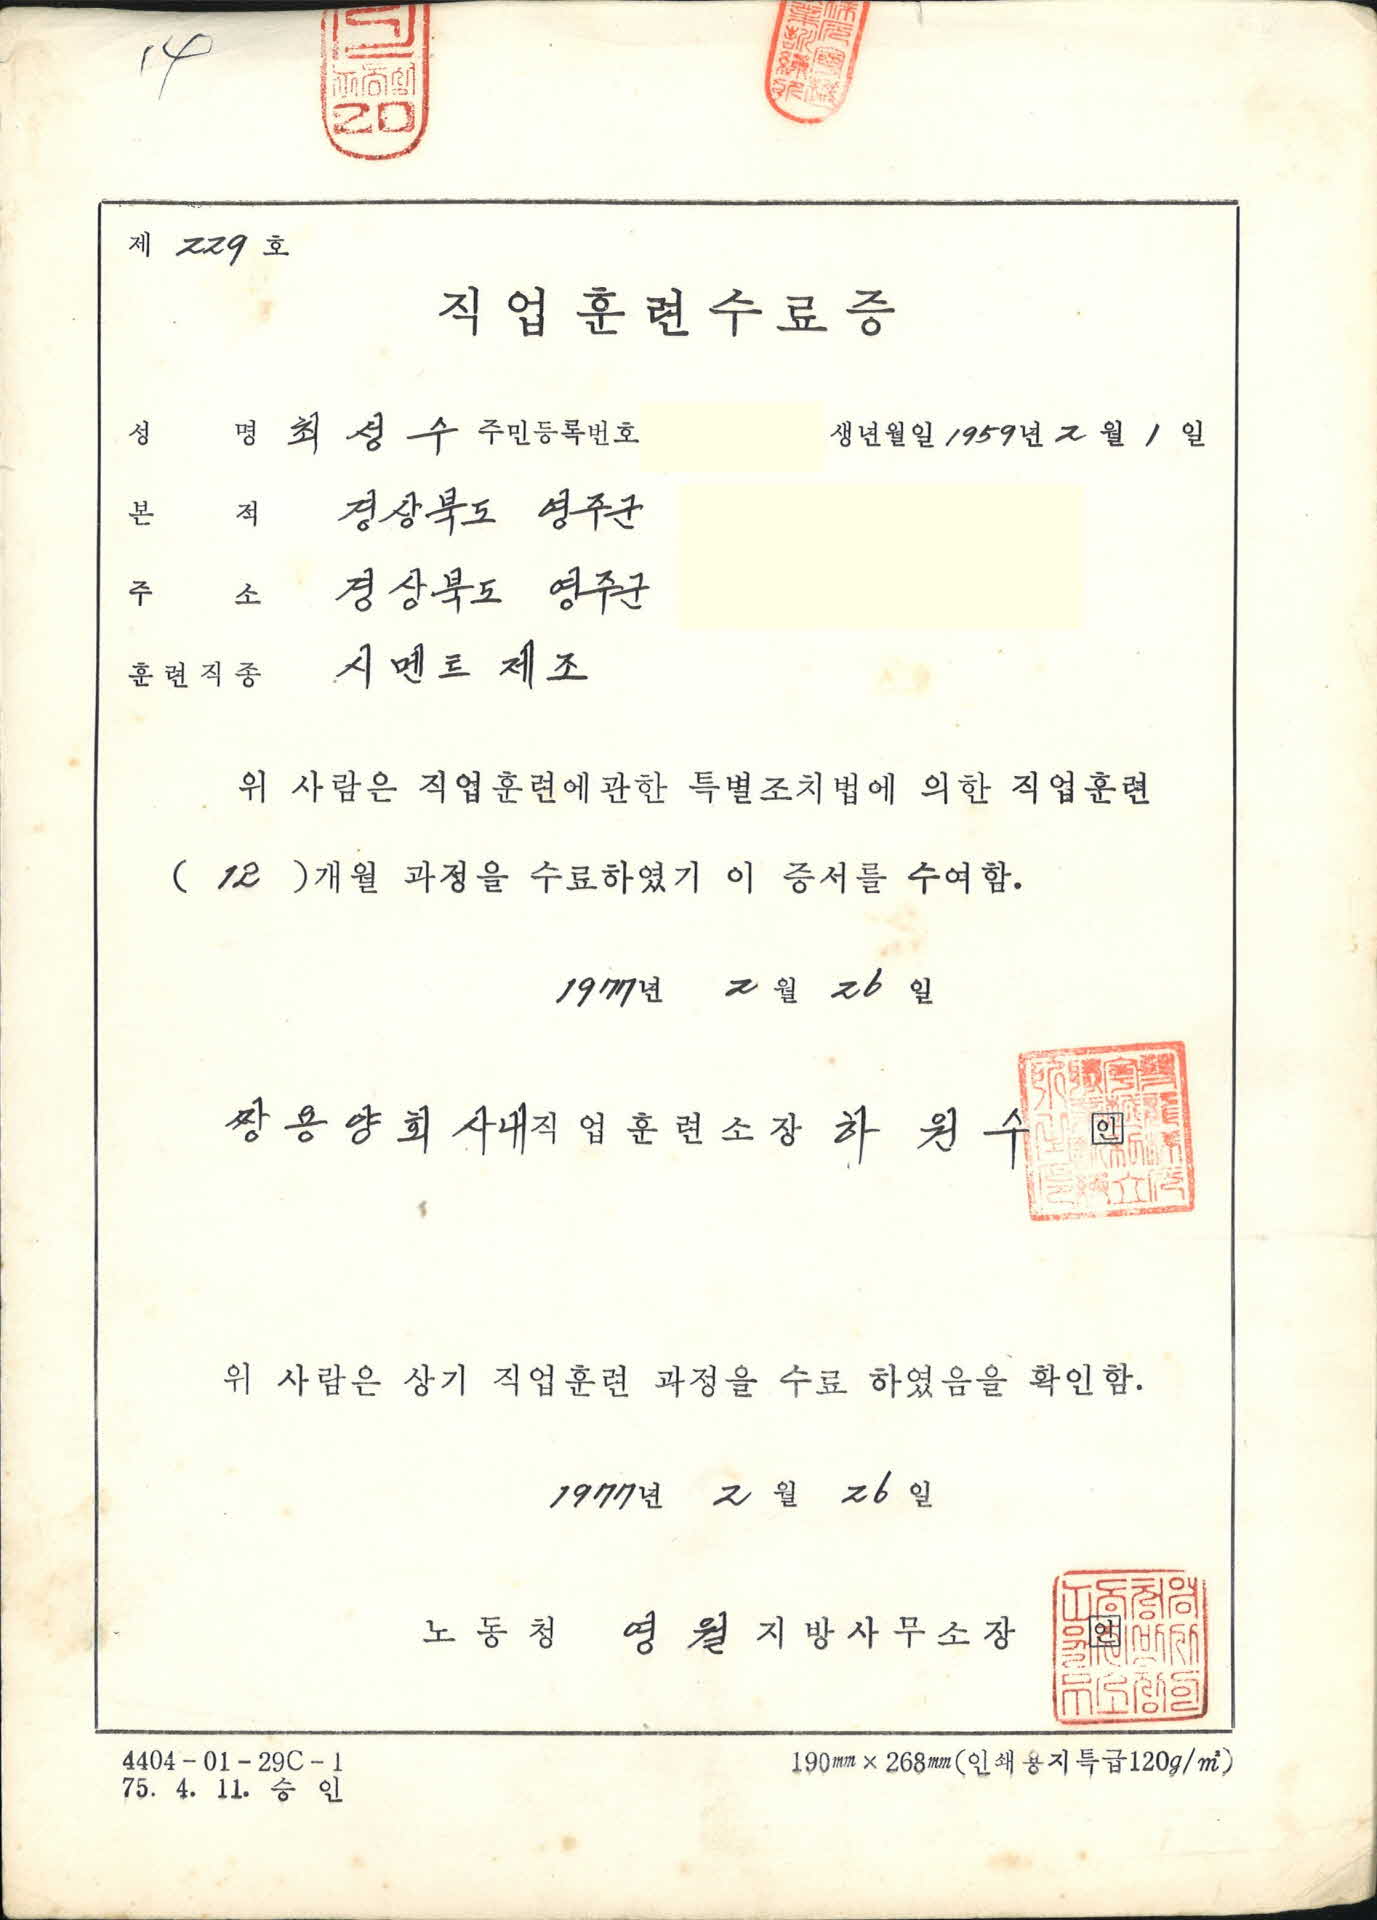 14
20
제 229 호
직업훈련수료증
성 명 최성수 주민등록번호 생년월일 1959년 2월 1일
본 적 경상북도 영주군
주 소 경상북도 영주군
훈련직종 시멘트 제조
위 사람은 직업훈련에관한 특별조치법에 의한 직업훈련
( 12 )개월 과정을 수료하였기 이 증서를 수여함.
1977년 2월 26일
쌍용양회 사내직업훈련소장 하원수 인
위 사람은 상기 직업훈련 과정을 수료 하였음을 확인함.
1977년 2월 26일
노동청 영월지방사무소장 인
4404-01-29C-1
190㎜×268㎜(인쇄용지특급120g/㎡)
75. 4. 11. 승인